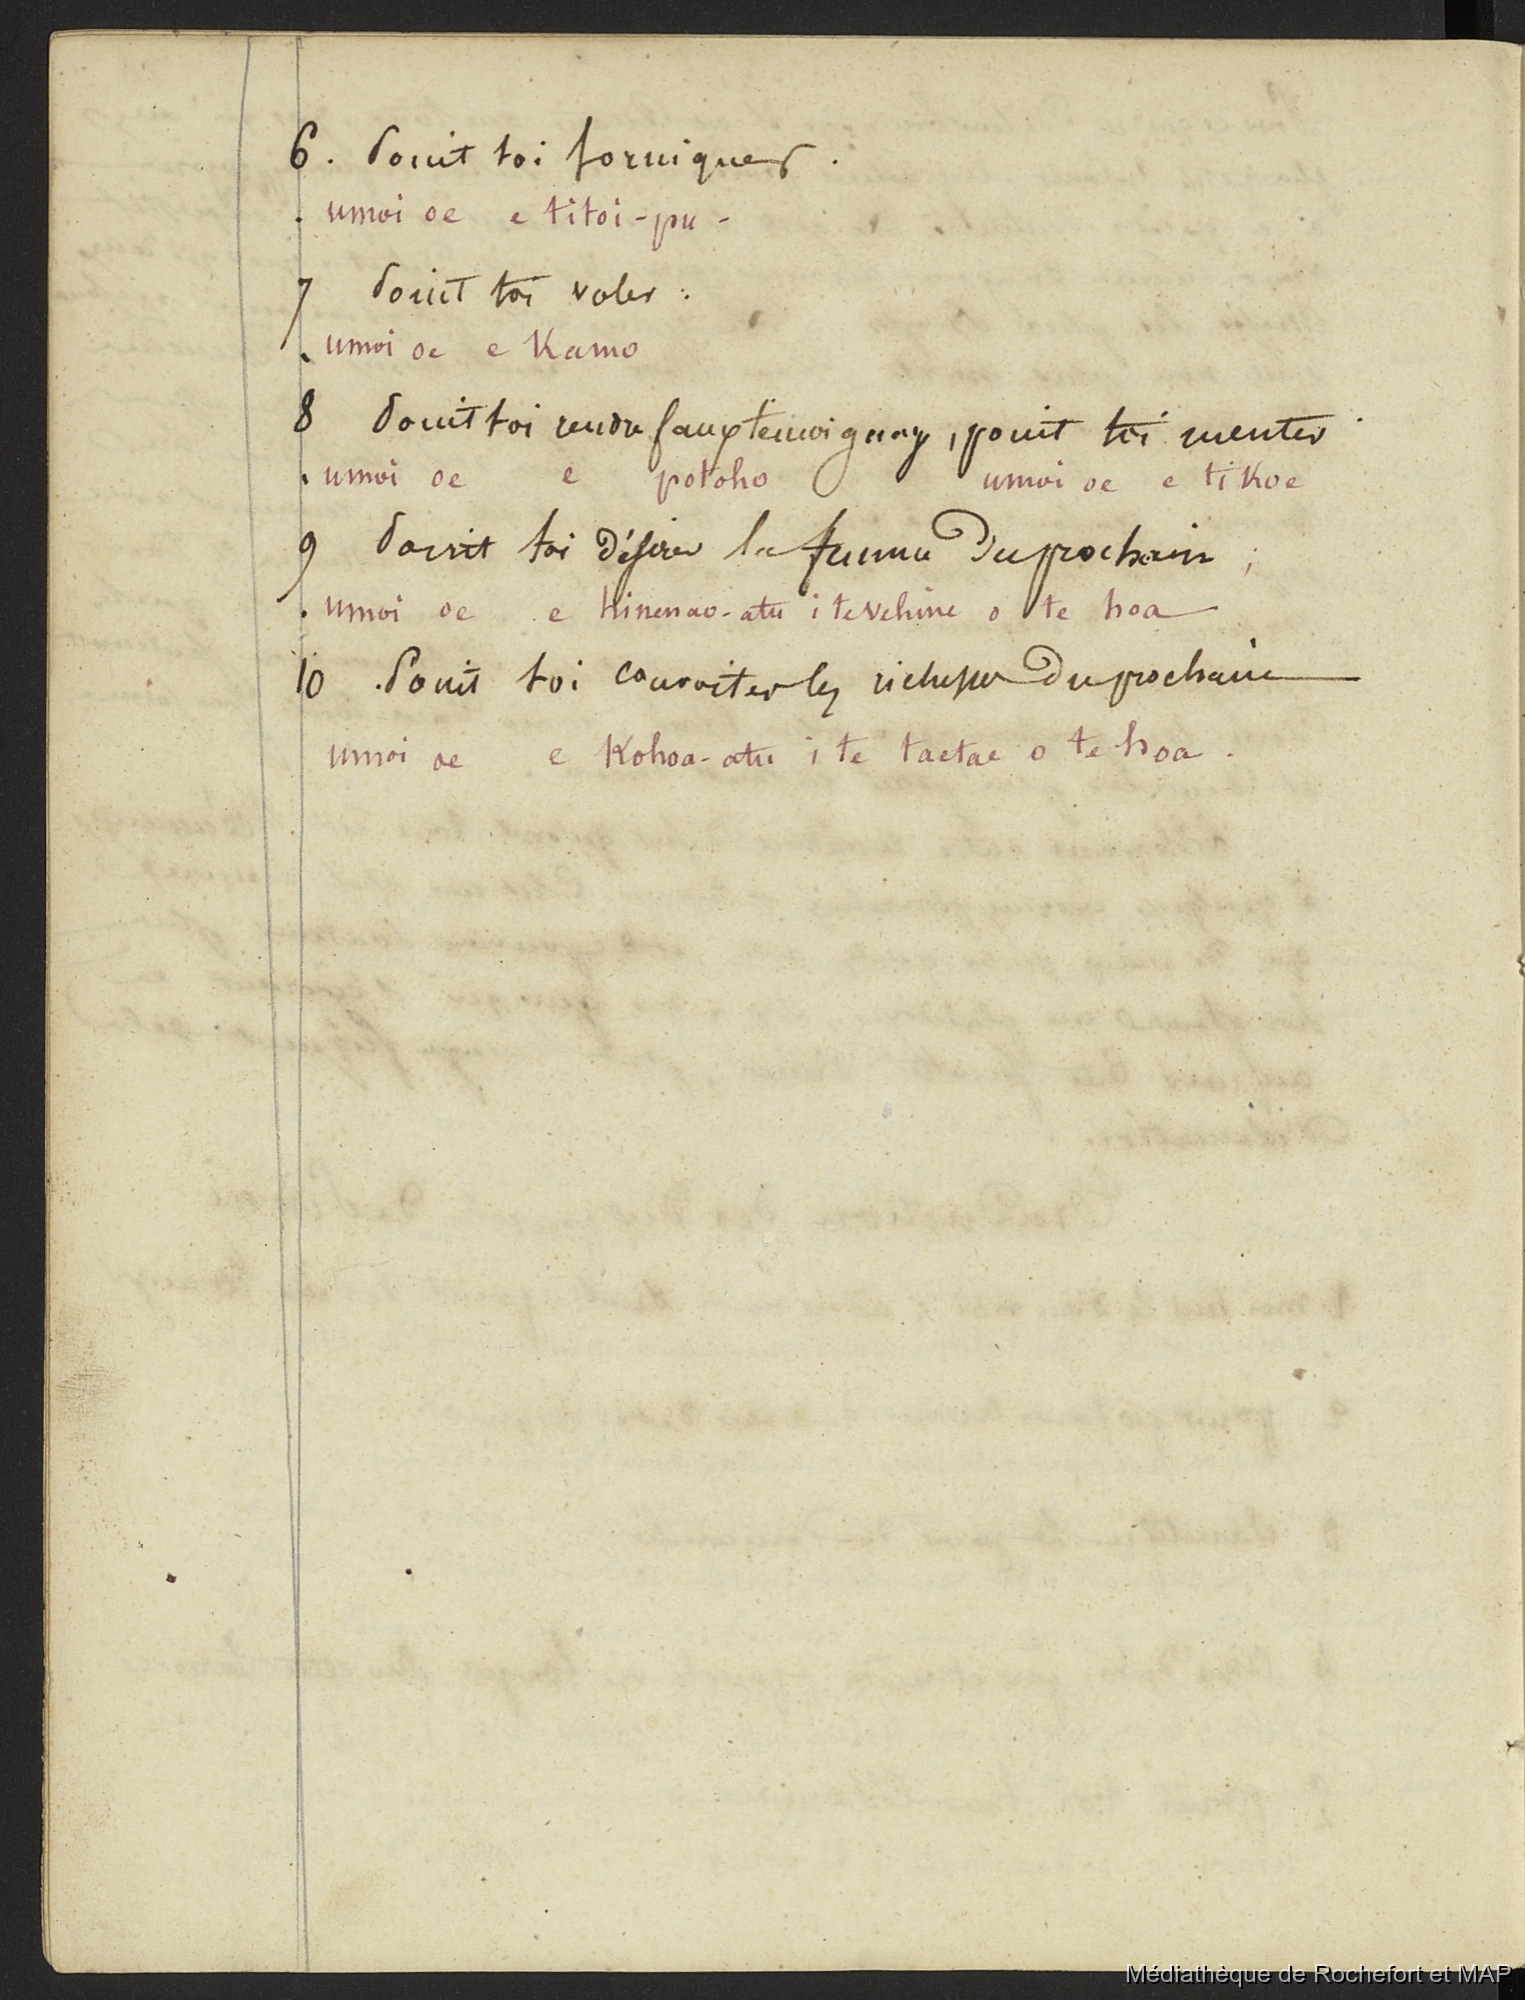 6. Point toi forniquer.
. umoi oe e titoi-pu -
7 Point toi voler.
. umoi oe e Kamo
8 Point toi rendre faux temoignag, point toi menter
. umoi oe e potoho umoi oe e tikoe
9 Point toi désirer la femme du prochain ;
. umoi oe e hinenao-atu i te vehine o te hoa
10 . Point toi convoiter les richesses du prochain
umoi oe e Kohoa-atu i te taetae o te hoa.
Médiathèque de Rochefort et MAP